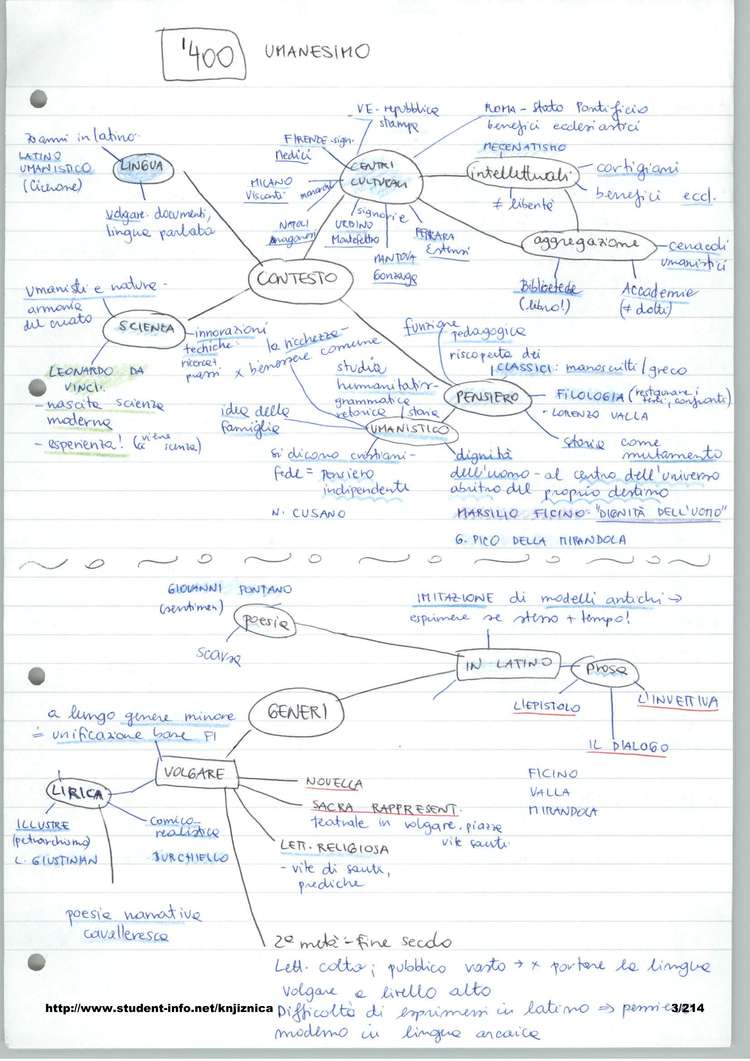 '400 UMANESIMO
VE - repubblica
stampa
ROMA - stato Pontificio
benefici ecclesiastici
FIRENZE - sign.
Medici
MILANO
Visconti
monarc.
NAPOLI
Aragonesi
CENTRI
CULTURALI
signorie
URBINO
Montefeltro
MANTOVA
Gonzaga
FERRARA
Estensi
MECENATISMO
intellettuali
≠ libertà
cortigiani
benefici eccl.
aggregazione
cenacoli
umanistici
Biblioteche
(libro!)
Accademie
(≠ dotti)
70 anni in latino
LATINO
UMANISTICO
(Cicerone)
LINGUA
volgare - documenti,
lingua parlata
CONTESTO
Umanisti e natura -
armonia
del creato
SCIENZA
innovazioni
tecniche
LEONARDO DA
VINCI:
- nascita scienza
moderna
- esperienza!
la ricchezza
x benessere comune
idea della
famiglia
studia
humanitatis -
grammatica
retorica / storia
UMANISTICO
funzione pedagogica
riscoperta dei
CLASSICI: manoscritti / greco
PENSIERO
FILOLOGIA (restaurare i testi, confronti)
- LORENZO VALLA
storia come
mutamento
Si dicono cristiani -
Fede = pensiero
indipendente
N. CUSANO
dignità
dell'uomo - al centro dell'universo
arbitro del proprio destino
MARSILIO FICINO - "DIGNITÀ DELL'UOMO"
G. PICO DELLA MIRANDOLA
GIOVANNI PONTANO
(sentimen)
poesia
scarsa
IMITAZIONE di modelli antichi →
esprimere se stesso + tempo!
IN LATINO
prosa
L'EPISTOLO
L'INVETTIVA
IL DIALOGO
FICINO
VALLA
MIRANDOLA
GENERI
a lungo genere minore
= unificazione base FI
VOLGARE
LIRICA
ILLUSTRE
(petrarchismo)
L. GIUSTINIAN
comico
realistica
BURCHIELLO
poesia narrativa
cavalleresca
NOVELLA
SACRA RAPPRESENT.
teatrale in volgare, piazze
vite santi
LETT. RELIGIOSA
- vite di santi,
prediche
2ª metà - fine secolo
Lett. colta; pubblico vasto → x portare la lingua
volgare a livello alto
http://www.student-info.net/knjiznica
Difficoltà di esprimersi in latino ⇒
3/214
moderno in lingua arcaica